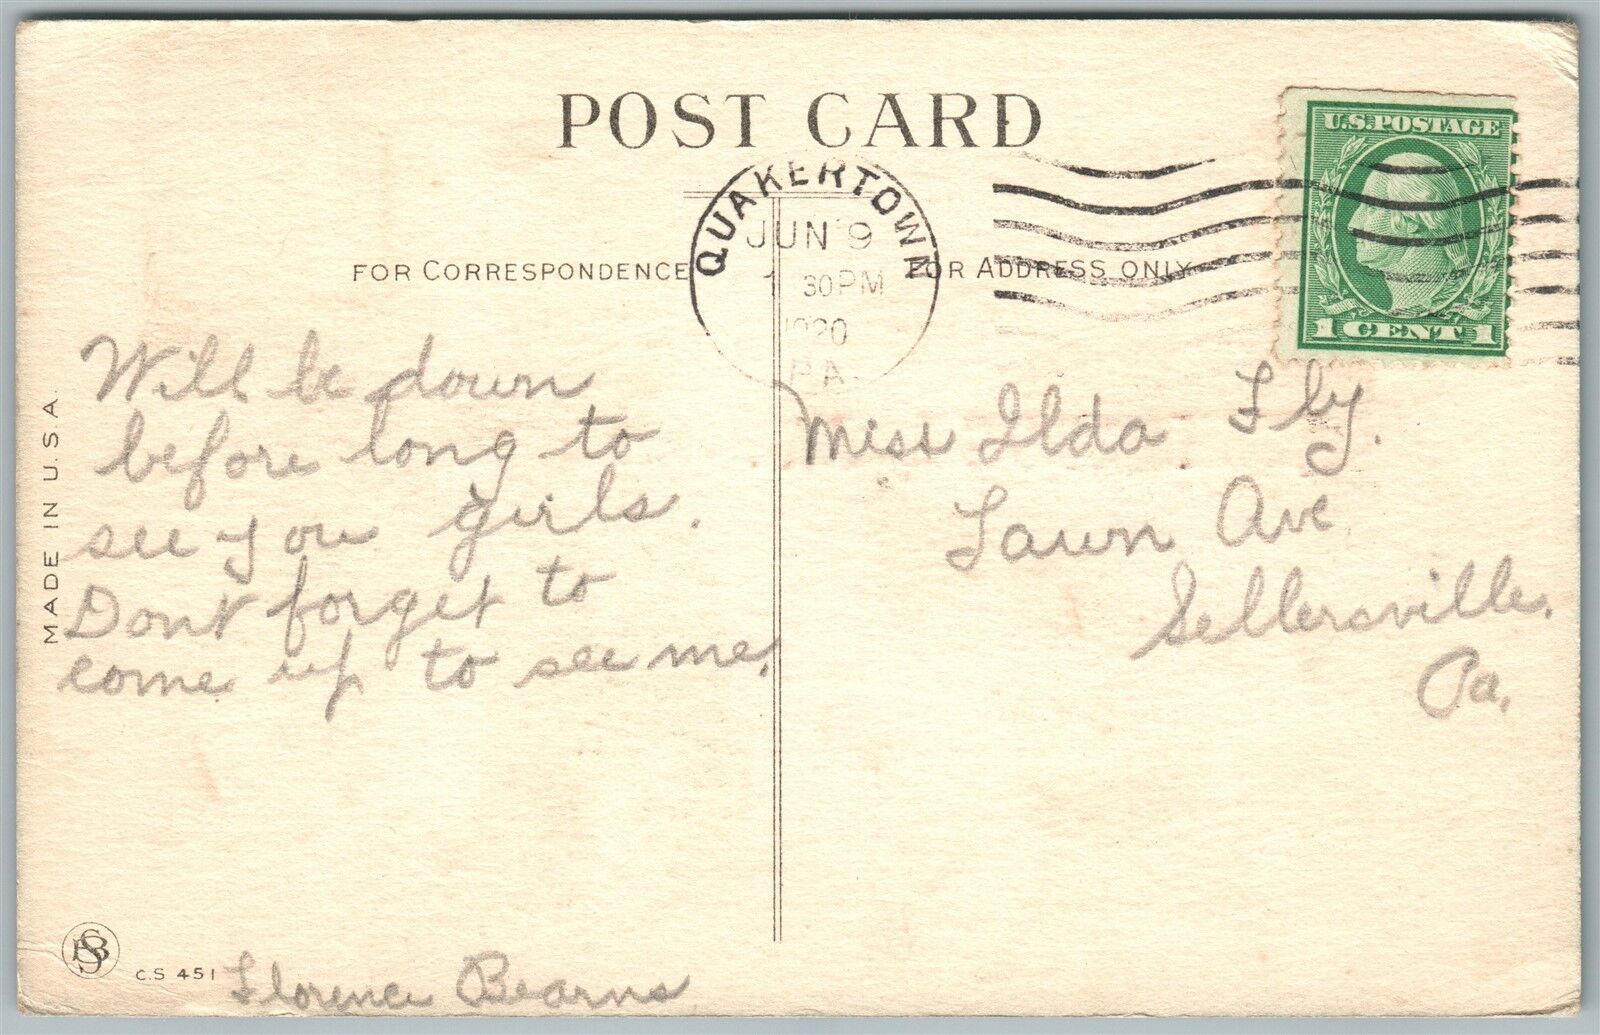 POST CARD
QUAKERTOWN
JUN 9
1 30 PM
1920
PA.
U.S. POSTAGE
1 CENT 1
FOR CORRESPONDENCE
FOR ADDRESS ONLY
Will be down
before long to
see you girls.
Dont forget to
come up to see me.
Miss Ilda Fly.
Lawn Ave
Sellersville.
Pa.
MADE IN U.S.A.
C.S 451
Florence Bearns